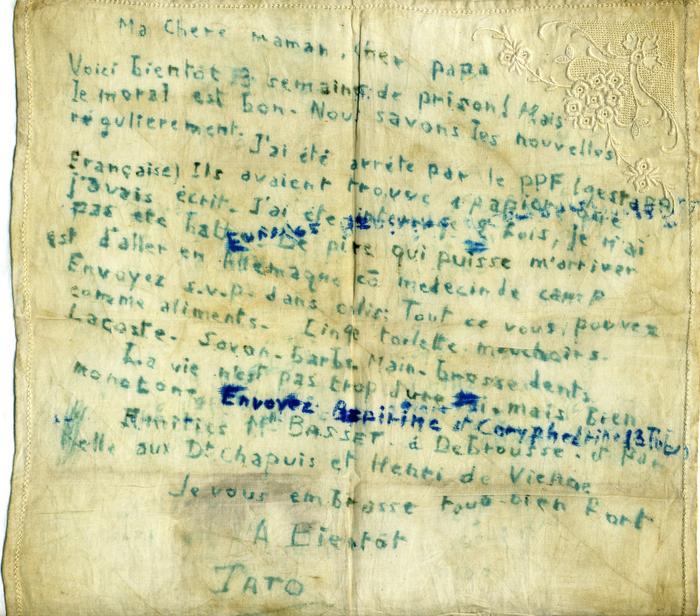 Ma Chere maman, cher papa
Voici bientôt 3 semaines de prison! Mais
le moral est bon. Nous savons les nouvelles
régulierement. J'ai été arrêté par le PPF (gestapo
Française) Ils avaient trouvé 1 papier que
j'avais écrit. J'ai été interrogé fois, je n'ai
pas été batt Le pire qui puisse m'arriver
est d'aller en Allemagne cô medecin de camp
Envoyez s.v.p. dans colis: Tout ce vous pouvez
comme aliments. Linge toilette mouchoirs.
Lacoste. Savon. barbe. Main. brosse dents.
La vie n'est pas trop dure ici. mais bien
monotone Envoyez Aspirine et Coryphedrine (3 Tubes)
Amitiés BASSET. à Debrousse. et par
elle aux Dr Chapuis et Henri de Vienne
Je vous embrasse tous bien fort
A Bientôt
TATO